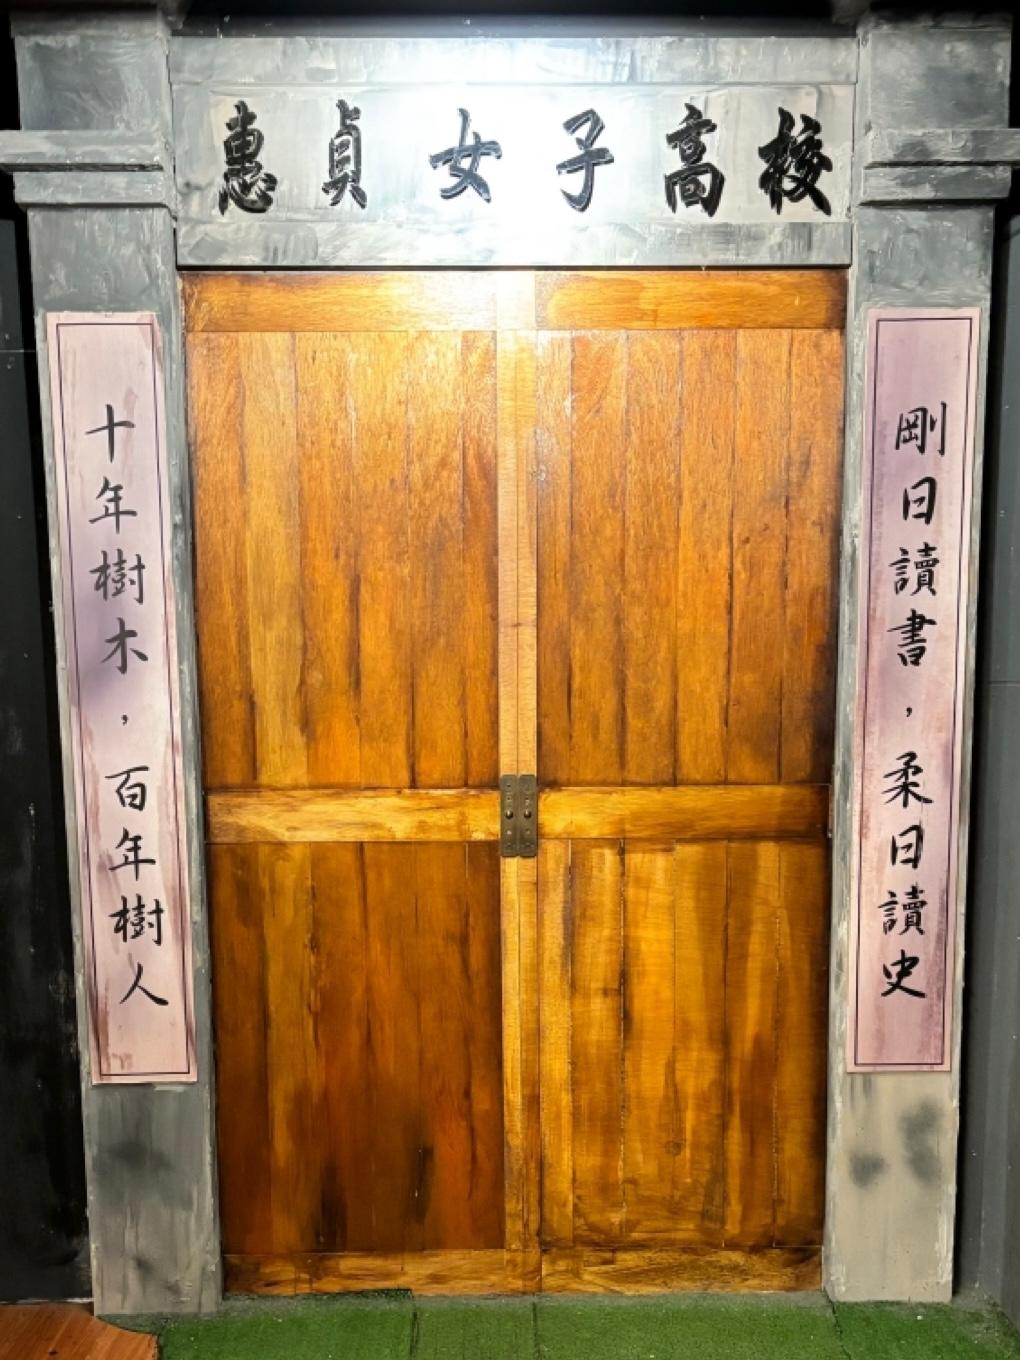 惠貞女子高校
剛日讀書，柔日讀史
十年樹木，百年樹人